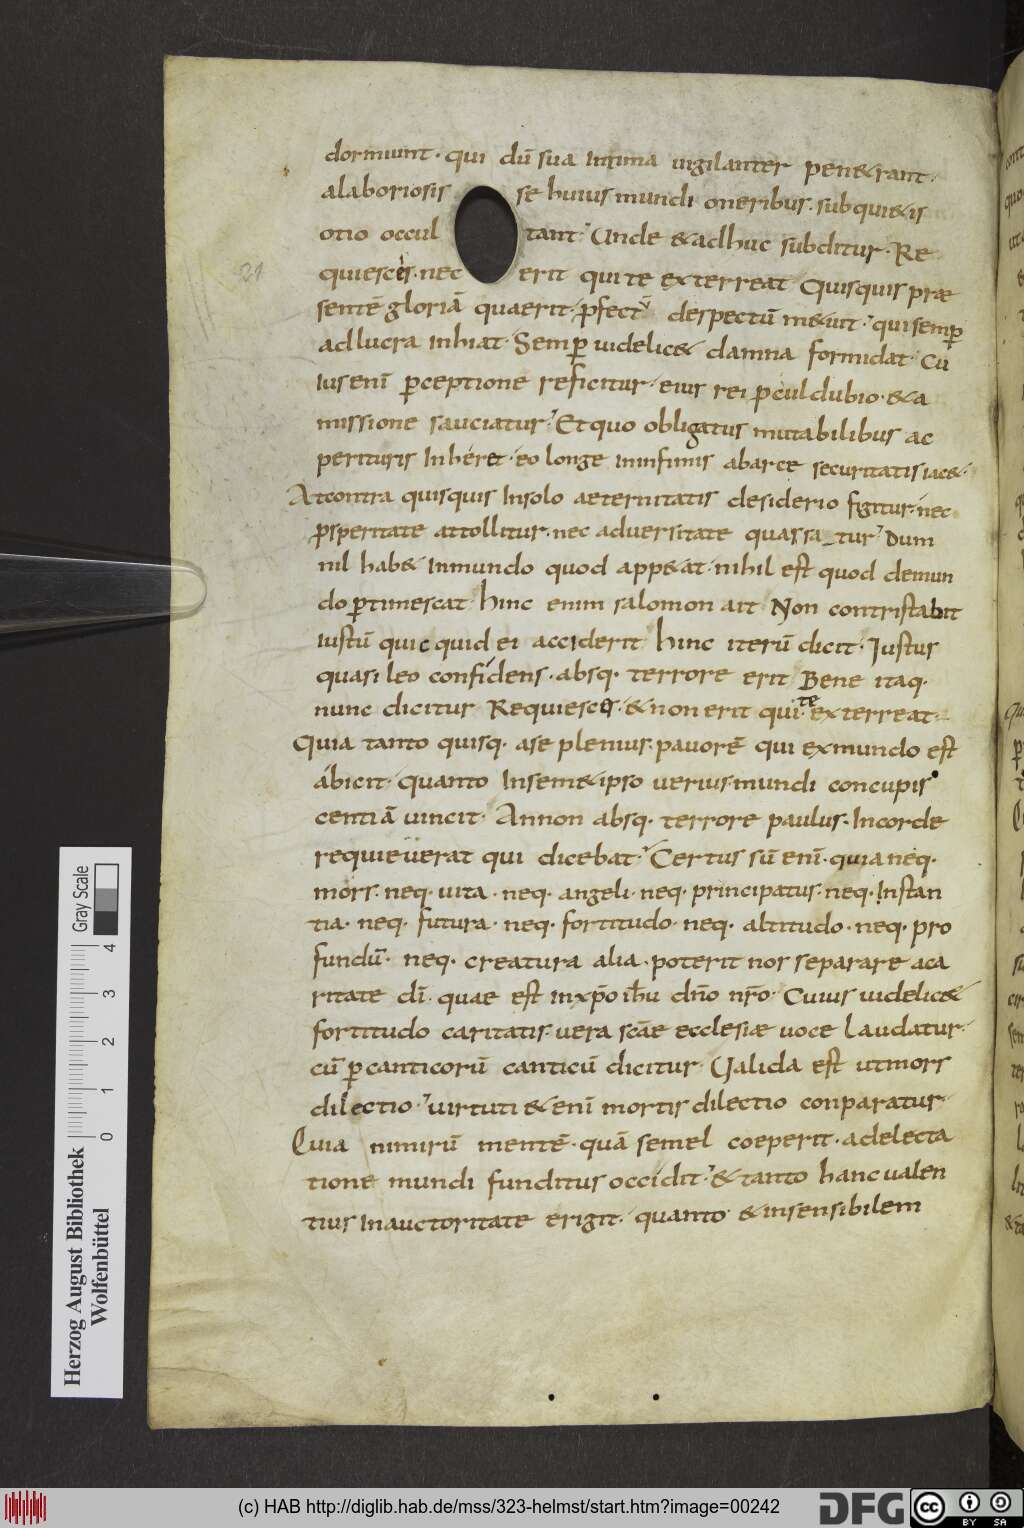 dormiunt· qui dū sua intima uigilanter pen&rant·
alaboriosis se huius mundi oneribus· subqui&is
otio occul tant· Unde &adhuc subditur· Re
quiesces· nec erit qui te exterreat Quisquis præ
sentē gloriā quaerit· pfectū despectū m&uit· qui semp
adlucra inhiat· Semp uidelic& damna formidat· Cu
ius eni pceptione reficitur· eius rei pculdubio· &a
missione sauciatur· Et quo obligatus mutabilibus ac
perituris Inheret· eo longe ininfimis abarce securitatis iac&·
At contra quisquis Insolo aeternitatis desiderio figitur· nec
psperitate attollitur· nec adversitate quassa_tur· Dum
nil hab& Inmundo quod app&at· nihil est quod demun
do ptimescat· hinc enim salomon ait Non contristabit
iustū quicquid ei acciderit hinc iterū dicit· Justus
quasi leo confidens· absq· terrore erit Bene itaq·
nunc dicitur Requiesces· & non erit qui· te exterreat·
Quia tanto quisq· ase plenius· pauorē qui exmundo est
abicit· quanto Insem&ipso uerius· mundi concupis
centiā uincit· Annon absq· terrore paulus· Incorde
requieuerat qui dicebat· Certus sū eni· quia neq·
mors· neq· uita· neq· angeli· neq· principatus· neq· Instan
tia· neq· futura· neq· fortitudo· neq· altitudo· neq· pro
fundū· neq· creatura alia· poterit nos separare aca
ritate dī· quae est inxpo ihu dño nro· Cuius uidelic&
fortitudo caritatis· uera scae ecclesiæ uoce laudatur·
cū p canticorū canticū dicitur· Valida est utmors
dilectio· uirtuti & eni mortis dilectio conparatur·
Quia nimirū mentē· quā semel coeperit· adelecta
tione mundi funditus occidit· & tanto hanc ualen
tius Inauctoritate erigit· quanto & insensibilem
21
Herzog August Bibliothek
Wolfenbüttel
Gray Scale
0 1 2 3 4
(c) HAB http://diglib.hab.de/mss/323-helmst/start.htm?image=00242
DFG
cc BY SA